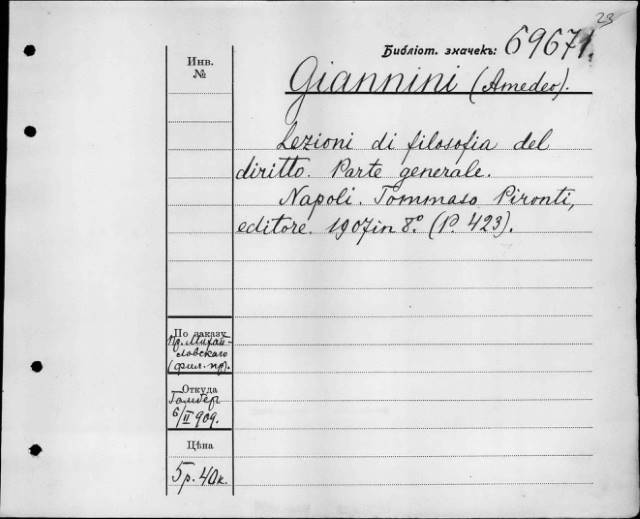 23
Библіот. значекъ: 69671.
Инв.
№
Giannini (Amedeo).
Lezioni di filosofia del
diritto. Parte generale.
Napoli. Tommaso Pironti,
editore. 1907 in 8.° (P. 423).
По заказу
Пр. Михай-
ловскаго
(фил. пр).
Откуда
Гамбер
6/II 909.
Цѣна
5 р. 40 к.